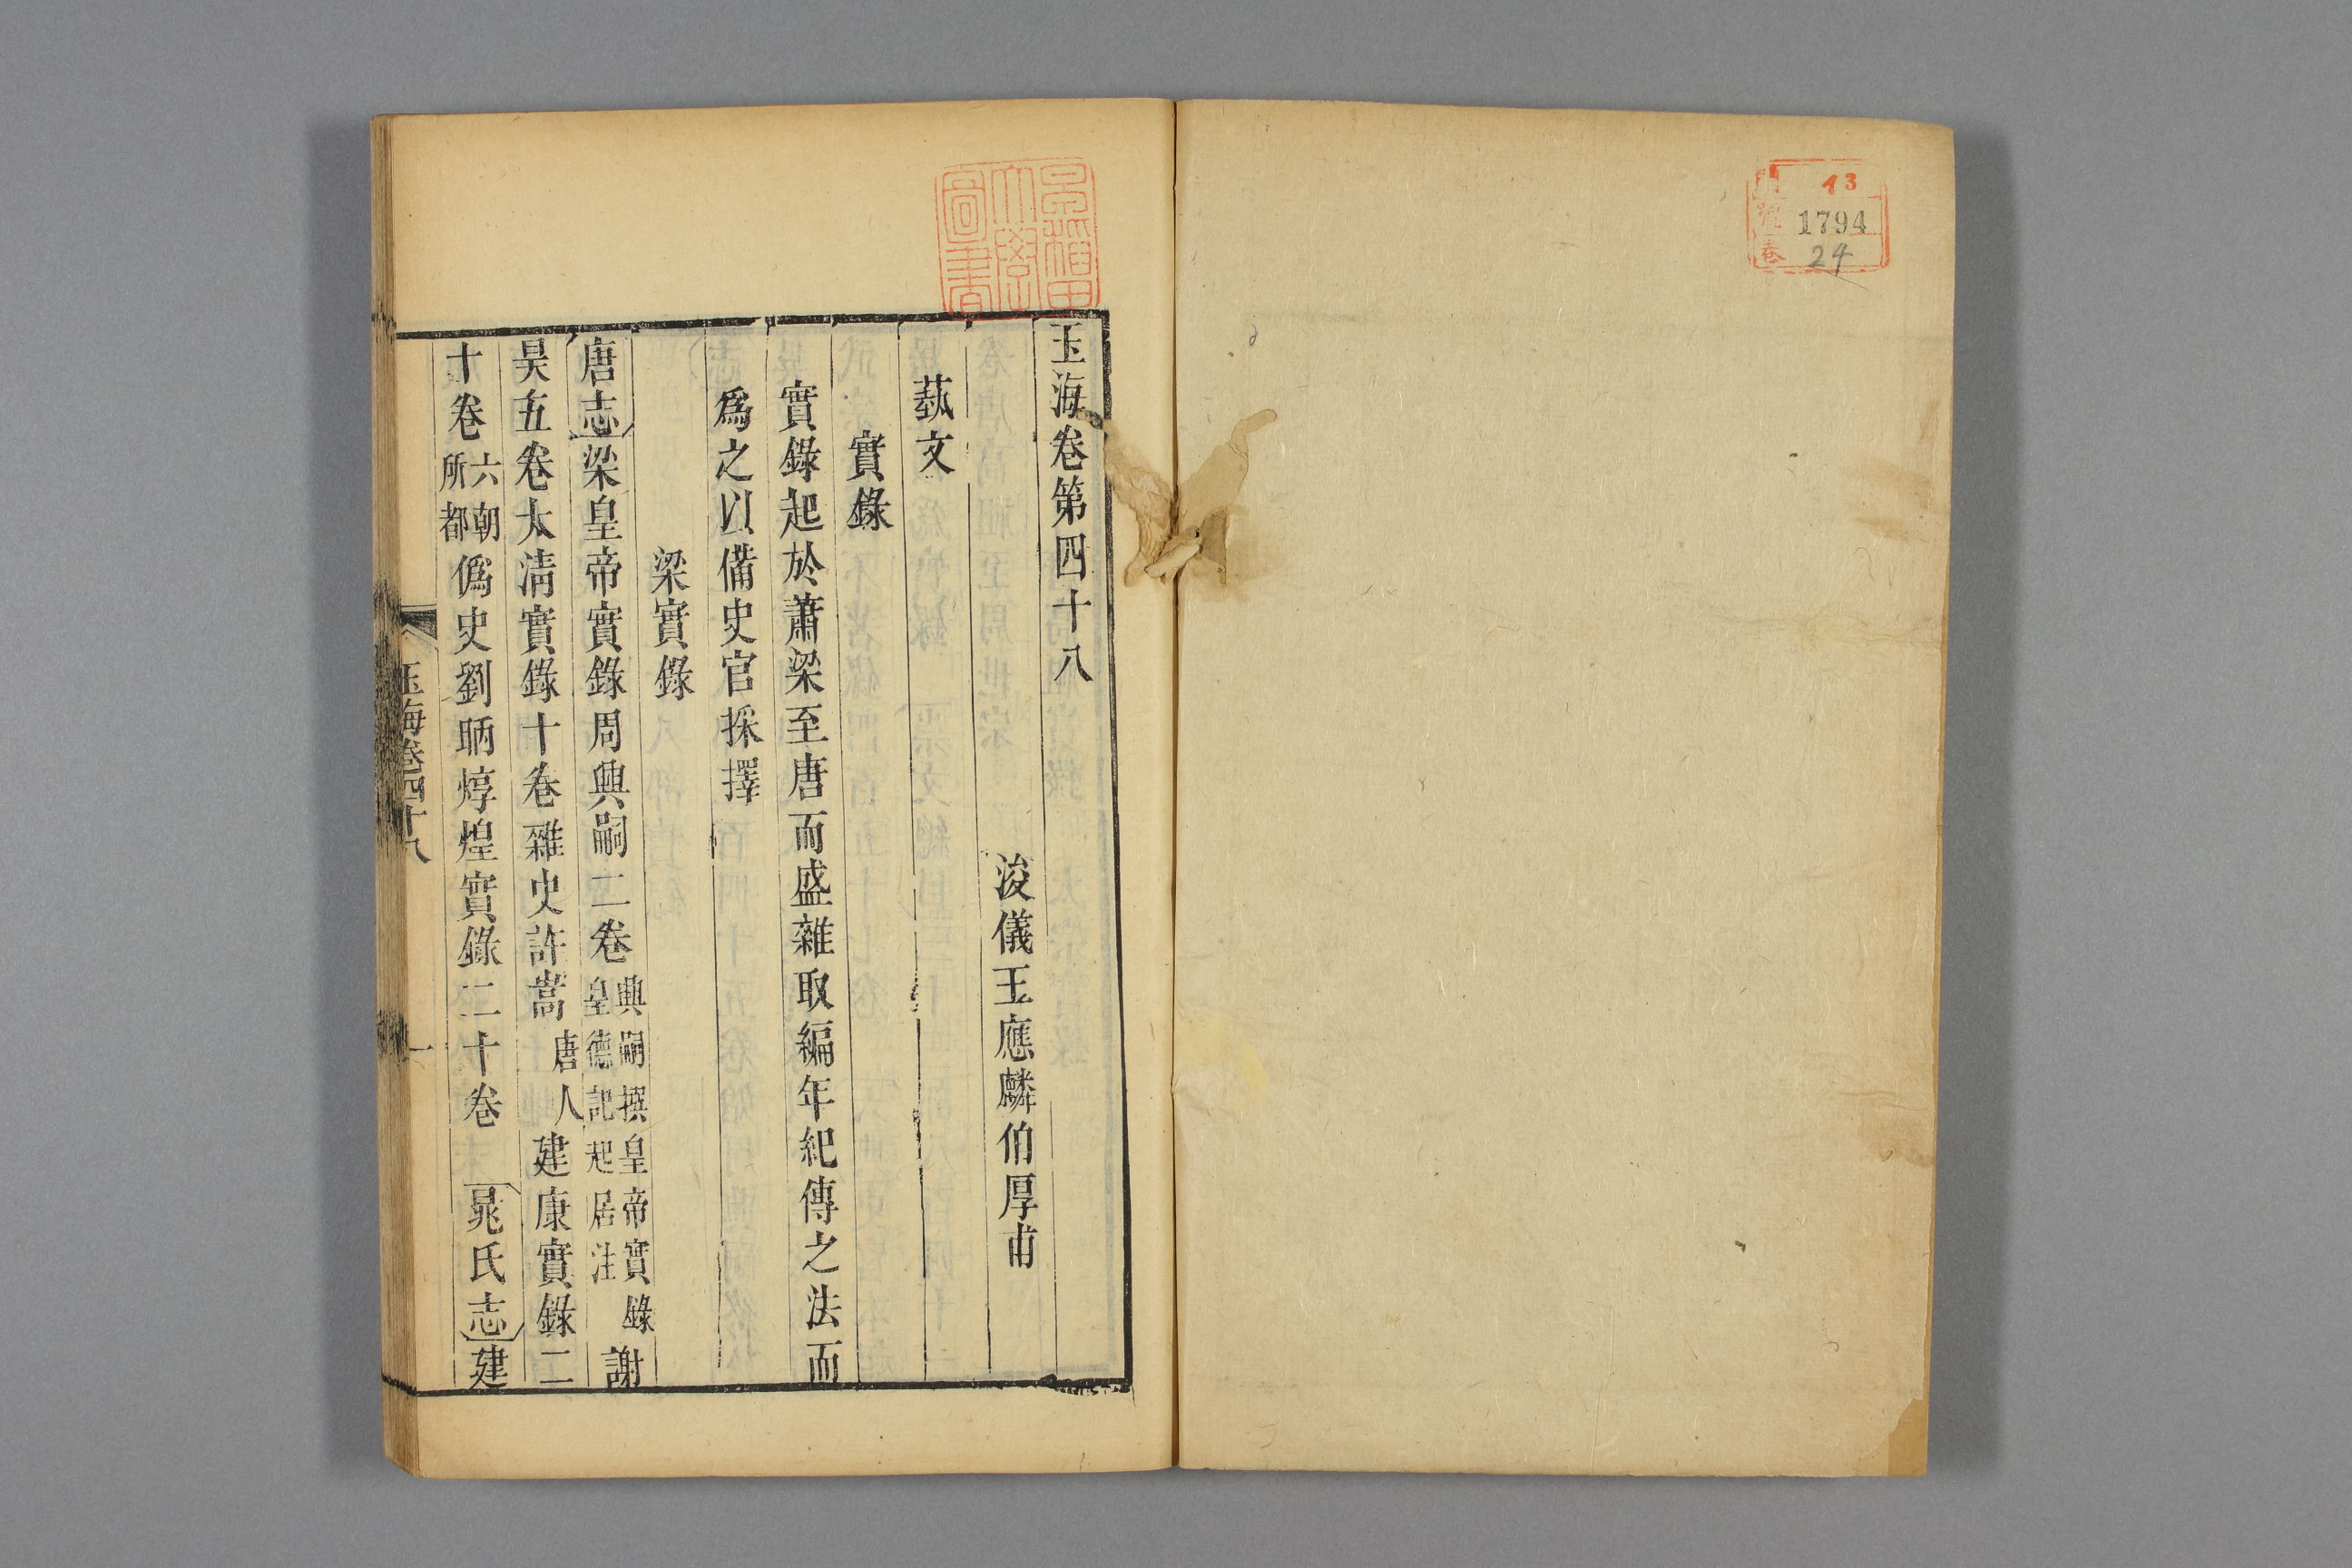 門 13
號 1794
卷 24
早稲田
大學
圖書
玉海卷第四十八
浚儀王應麟伯厚甫
藝文
實錄
實錄起於蕭梁至唐而盛雜取編年紀傳之法而
爲之以備史官採擇
梁實錄
唐志梁皇帝實錄周興嗣二卷興嗣撰皇帝實錄皇德記起居注謝
昊五卷太清實錄十卷雜史許嵩唐人建康實錄二
十卷六朝所都僞史劉昞焞煌實錄二十卷晁氏志建
玉海卷四十八 一